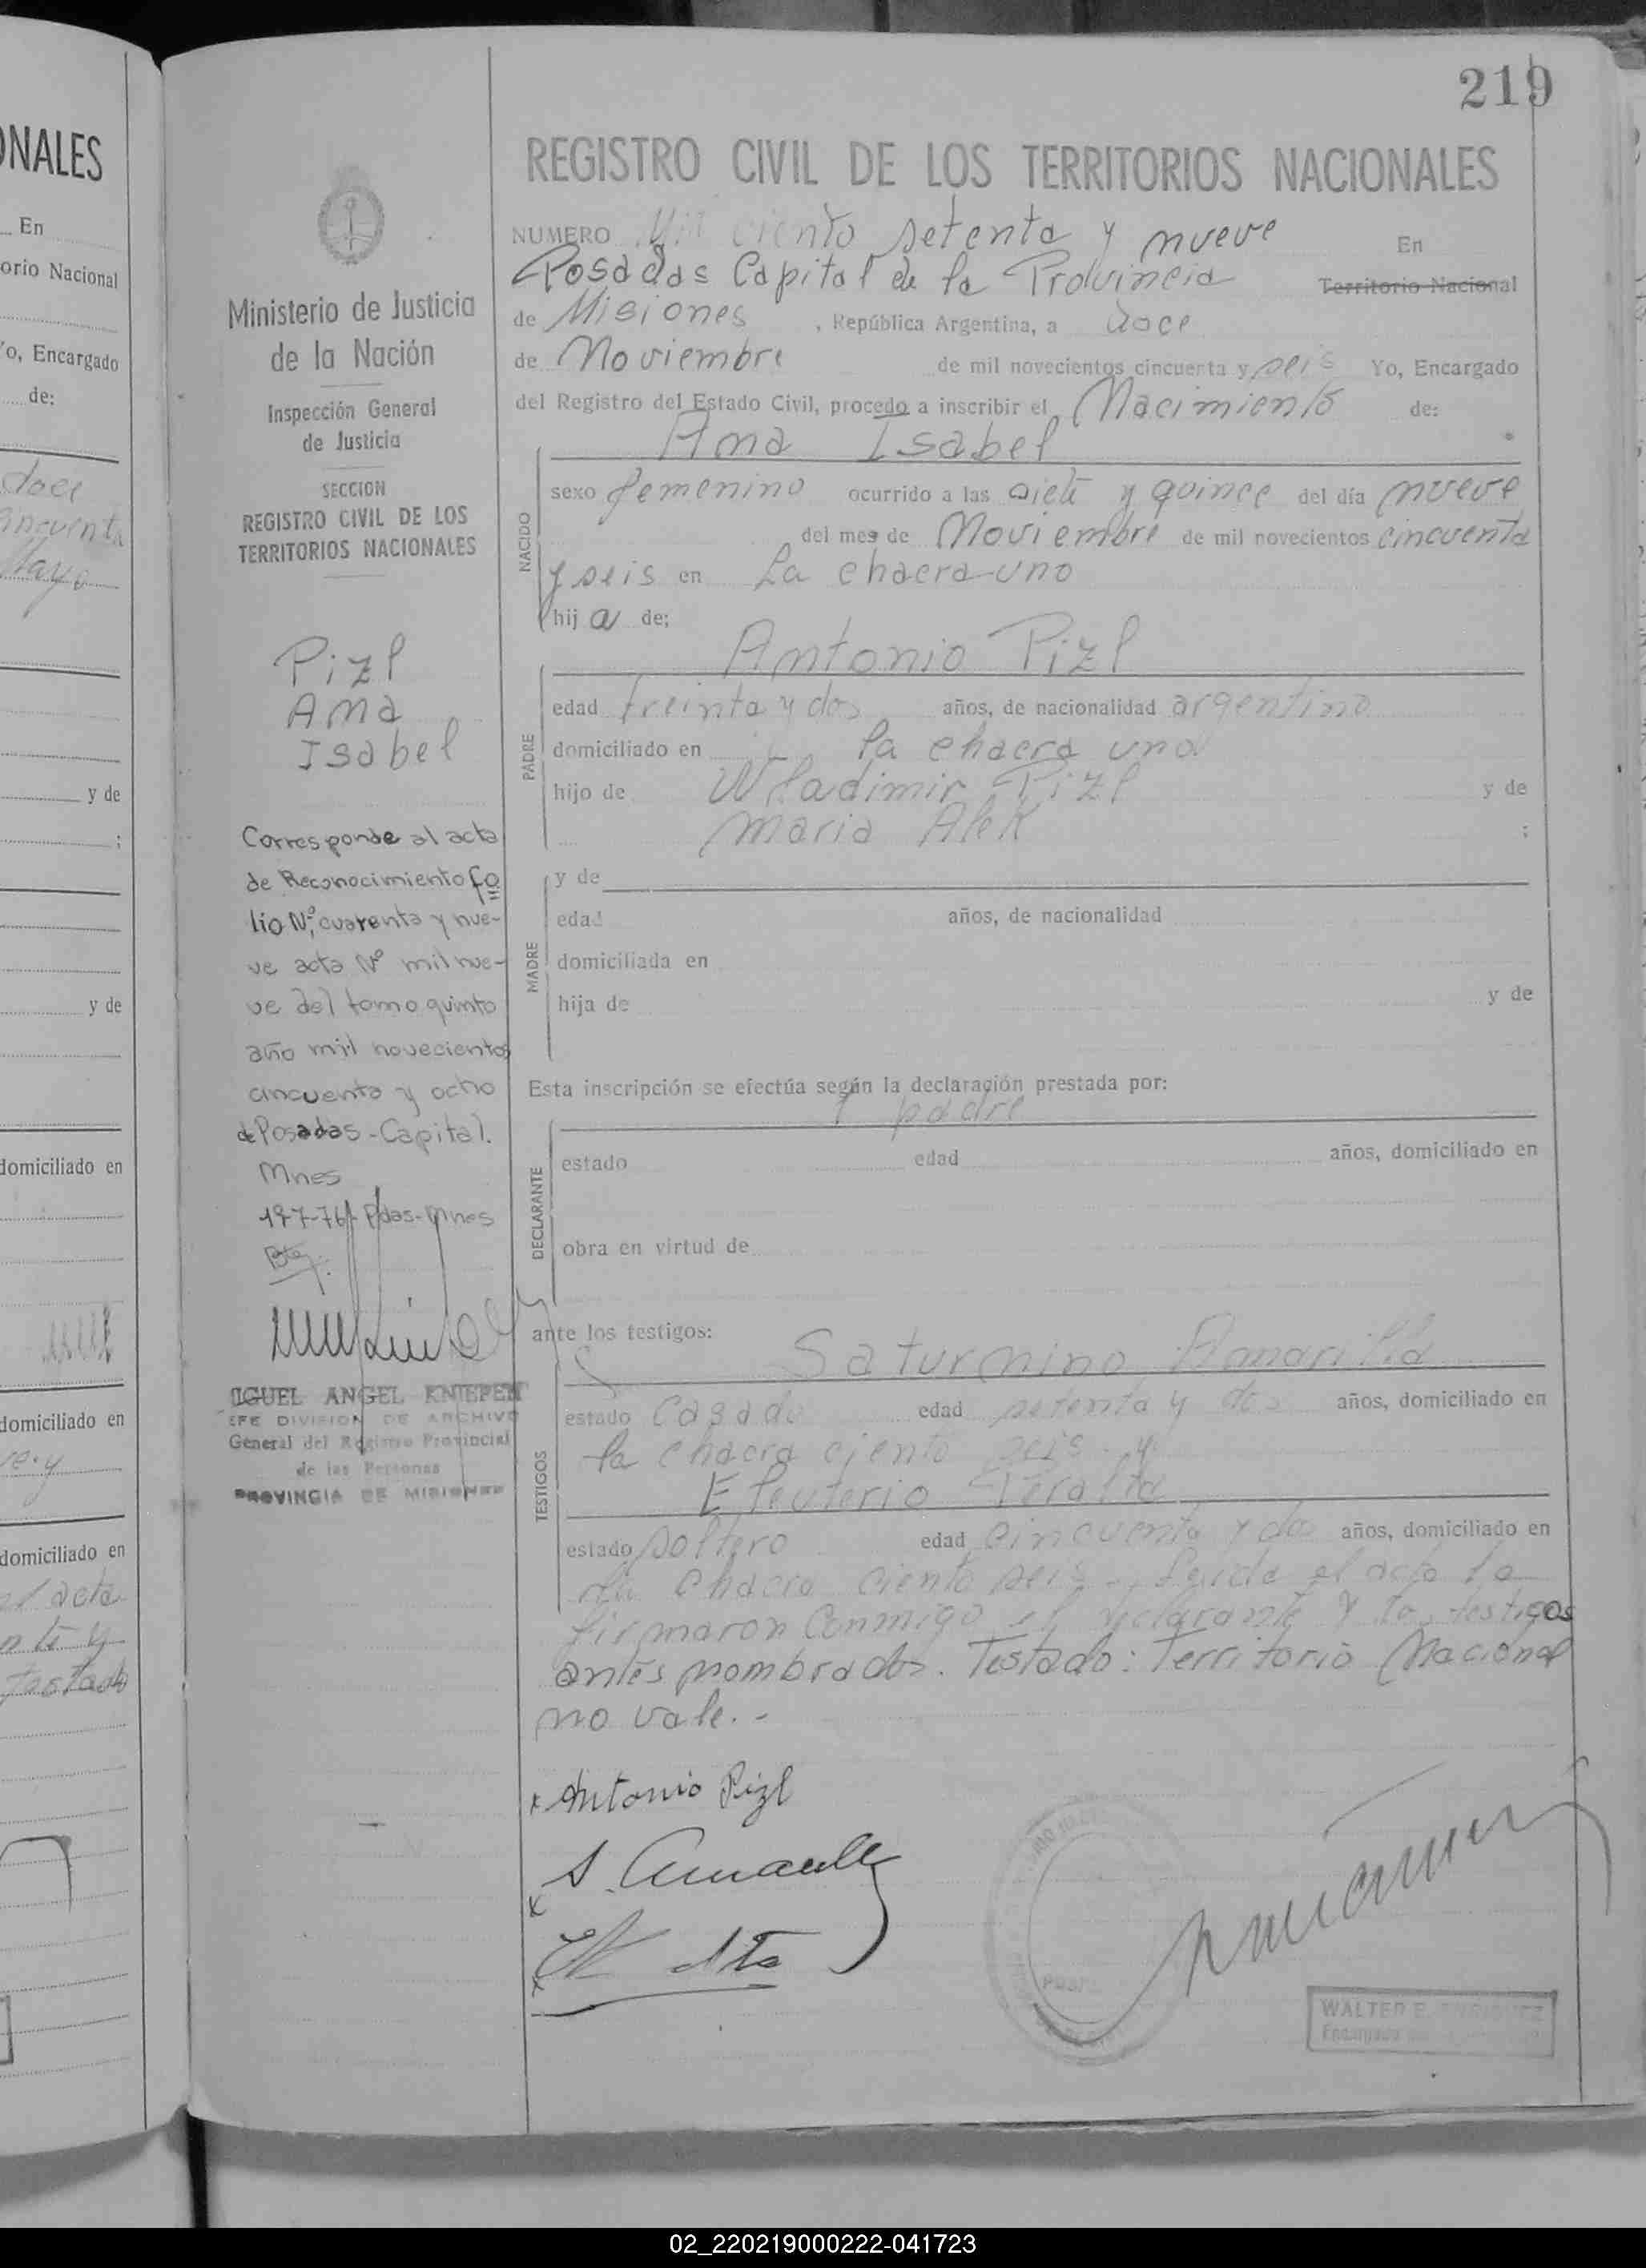 219
ONALES
En
orio Nacional
Yo, Encargado
de:
doce
cincuenta
Mayo
y de
;
y de
domiciliado en
domiciliado en
domiciliado en
acta
testado
Ministerio de Justicia
de la Nación
Inspección General
de Justicia
SECCION
REGISTRO CIVIL DE LOS
TERRITORIOS NACIONALES
Pizl
Ana
Isabel
Corresponde al acta
de Reconocimiento fo
lio Nº, cuarenta y nue-
ve acta Nº mil nue-
ve del tomo quinto
año mil novecientos
cincuenta y ocho
de Posadas - Capital.
Mnes
Pdas-Mnes
IGUEL ANGEL KNIEPEN
EFE DIVISION DE ARCHIVO
General del Registro Provincial
de las Personas
PROVINCIA DE MISIONES
REGISTRO CIVIL DE LOS TERRITORIOS NACIONALES
NUMERO Mil ciento setenta y nueve En
Posadas Capital de la Provincia Territorio Nacional
de Misiones , República Argentina, a doce
de Noviembre de mil novecientos cincuenta y seis Yo, Encargado
del Registro del Estado Civil, procedo a inscribir el Nacimiento de:
Ana Isabel
NACIDO
sexo femenino ocurrido a las siete y quince del día nueve
del mes de Noviembre de mil novecientos cincuenta
y seis en La chacra uno
hij a de;
Antonio Pizl
PADRE
edad treinta y dos años, de nacionalidad argentino
domiciliado en la chacra uno
hijo de Wladimir Pizl y de
Maria Alek ;
MADRE
y de
edad años, de nacionalidad
domiciliada en
hija de y de
Esta inscripción se efectúa según la declaración prestada por:
l padre
DECLARANTE
estado edad años, domiciliado en
obra en virtud de
ante los testigos:
Saturnino Amarilla
TESTIGOS
estado Casado edad setenta y dos años, domiciliado en
la chacra ciento seis y
Eleuterio Peralta
estado soltero edad cincuenta y dos años, domiciliado en
la chacra ciento seis.- Leida el acta la
firmaron conmigo el declarante y los testigos
antes nombrados. Testado: Territorio Nacional
no vale. -
x Antonio Pizl
x
x
WALTER E.
Encargado
02_220219000222-041723